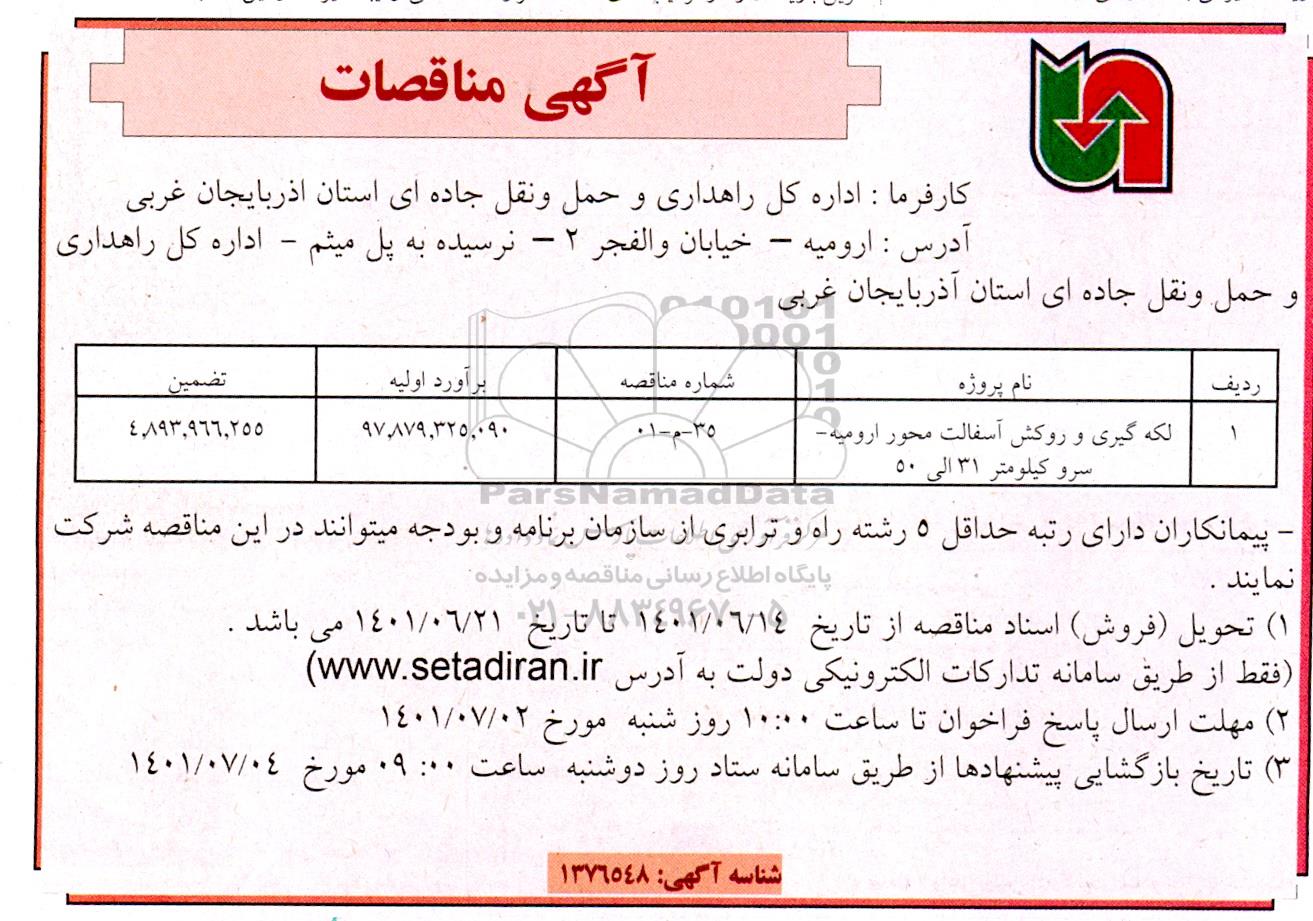 آگهی مناقصات
کارفرما : اداره کل راهداری و حمل ونقل جاده ای استان اذربایجان غربی
آدرس : ارومیه – خیابان والفجر ۲ – نرسیده به پل میثم - اداره کل راهداری
و حمل ونقل جاده ای استان آذربایجان غربی
ردیف نام پروژه شماره مناقصه برآورد اولیه تضمین
۱ لکه گیری و روکش آسفالت محور ارومیه- ۳۵-م-۰۱ ۹۷,۸۷۹,۳۲۵,۰۹۰ ۴,۸۹۳,۹۶۶,۲۵۵
سرو کیلومتر ۳۱ الی ۵۰
ParsNamadData
- پیمانکاران دارای رتبه حداقل ۵ رشته راه و ترابری از سازمان برنامه و بودجه میتوانند در این مناقصه شرکت
نمایند .
پایگاه اطلاع رسانی مناقصه و مزایده
۱) تحویل (فروش) اسناد مناقصه از تاریخ ۱۴۰۱/۰۶/۱۴ تا تاریخ ۱۴۰۱/۰۶/۲۱ می باشد .
۰۲۱-۸۸۳۴۹۶۷۰-۵
(فقط از طریق سامانه تدارکات الکترونیکی دولت به آدرس www.setadiran.ir)
۲) مهلت ارسال پاسخ فراخوان تا ساعت ۱۰:۰۰ روز شنبه مورخ ۱۴۰۱/۰۷/۰۲
۳) تاریخ بازگشایی پیشنهادها از طریق سامانه ستاد روز دوشنبه ساعت ۰۰: ۰۹ مورخ ۱۴۰۱/۰۷/۰۴
شناسه آگهی: ۱۳۷۶۵۴۸